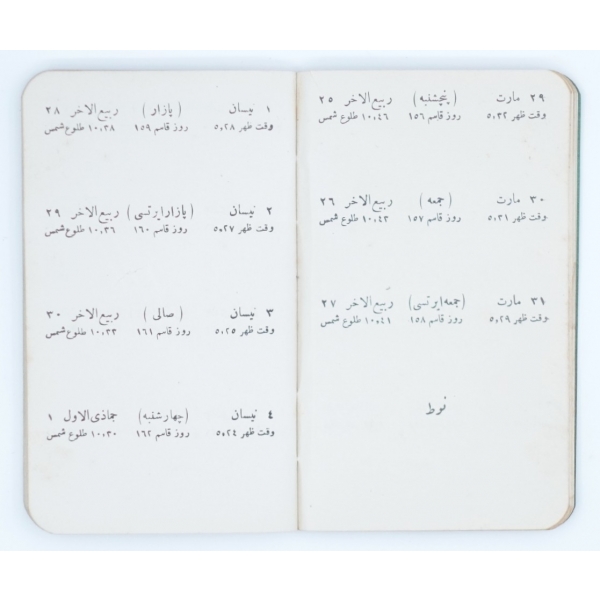 ٢٩ مارت (پنچشنبه) ربيع الاخر ٢٥
وقت ظهر ٥،٣٢ روز قاسم ١٥٦ ١٠،٤٦ طلوع شمس
٣٠ مارت (جمعه) ربيع الاخر ٢٦
وقت ظهر ٥،٣١ روز قاسم ١٥٧ ١٠،٤٣ طلوع شمس
٣١ مارت (جمعه ايرتسى) ربيع الاخر ٢٧
وقت ظهر ٥،٢٩ روز قاسم ١٥٨ ١٠،٤١ طلوع شمس
نوط
١ نيسان (پازار) ربيع الاخر ٢٨
وقت ظهر ٥،٢٨ روز قاسم ١٥٩ ١٠،٣٨ طلوع شمس
٢ نيسان (پازار ايرتسى) ربيع الاخر ٢٩
وقت ظهر ٥،٢٧ روز قاسم ١٦٠ ١٠،٣٦ طلوع شمس
٣ نيسان (صالى) ربيع الاخر ٣٠
وقت ظهر ٥،٢٥ روز قاسم ١٦١ ١٠،٣٣ طلوع شمس
٤ نيسان (چهارشنبه) جماذى الاول ١
وقت ظهر ٥،٢٤ روز قاسم ١٦٢ ١٠،٣٠ طلوع شمس